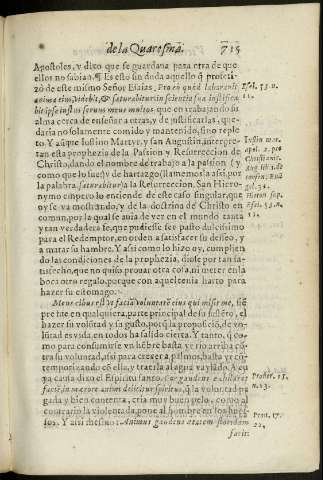 de la Quaresma. 715
Apostoles, y dixo que se guardaua para otra de que
ellos no sabian. ¶ Es esto sin duda aquello q̃ profeti-
zò de este mismo Señor Esaias, Pro eò quòd laborauit
anima eius, videbit, & saturabitur: in scientia sua iustifica
bit ipse iustus seruus meus multos, que en trabajado su
alma cerca de enseñar a otras, y de justificarlas, que-
daria no solamente comido y mantenido, sino reple
to. Y aũque Iustino Martyr, y san Augustin, interpre-
tan esta prophezia de la Passion y Resurreccion de
Christo, dando el nombre de trabajo a la passion (y
como que lo fue) y de hartazgo (llamemosla assi) por
la palabra, saturabitur, la Resurreccion. San Hiero-
nymo empero lo entiende de este caso singular, que
no se va mostrando, y de la doctrina de Christo en
comun, por la qual se auia de ver en el mundo tanta
y tan verdadera fe, que pudiesse ser pasto dulcissimo
para el Redemptor, en orden a satisfacer su desseo, y
a matar su hambre. Y assi como lo hizo oy, cumpliẽn
do las condiciones de la prophezia, dize por tan sa-
tisfecho, que no quiso prouar otra cosa, ni meter en la
boca otro regalo, porque con aquel tenia harto para
hazer su estomago.
Meus cibus est vt faciã voluntatẽ eius qui misit me, siẽ
pre fue en qualquiera, parte principal de su sustẽto, el
hazer su volũtad y su gusto, porq̃ la proposiciõ, de vo-
lũtad es vida, en todos ha salido cierta. Y tanto, q̃ co-
mo para consumirse vn hõbre basta yr rio arriba cõ-
tra su voluntad, assi para crecer a palmos, basta yr cõ-
temporizando cõ ella, y traerla al agua vayllada. A cu
ya causa dixo el Espiritu santo. Cor gaudens exhilarat
faciẽ, in moerore animi deiicitur spiritus, q̃ la volũtad pa
gada y bien contenta, cria muy buen pelo, como al
contrario la violentada, pone al hombre en los hues-
sos. Y assi mesmo: Animus gaudens aetatem floridam
facit:
Esai. 53. n.
11.
Iustin. mar.
apol. 2. pro
Christianis.
Hieron. sup.
Esai. 53. n.
Prouer. 15.
n. 13.
Prou. 17.
22.